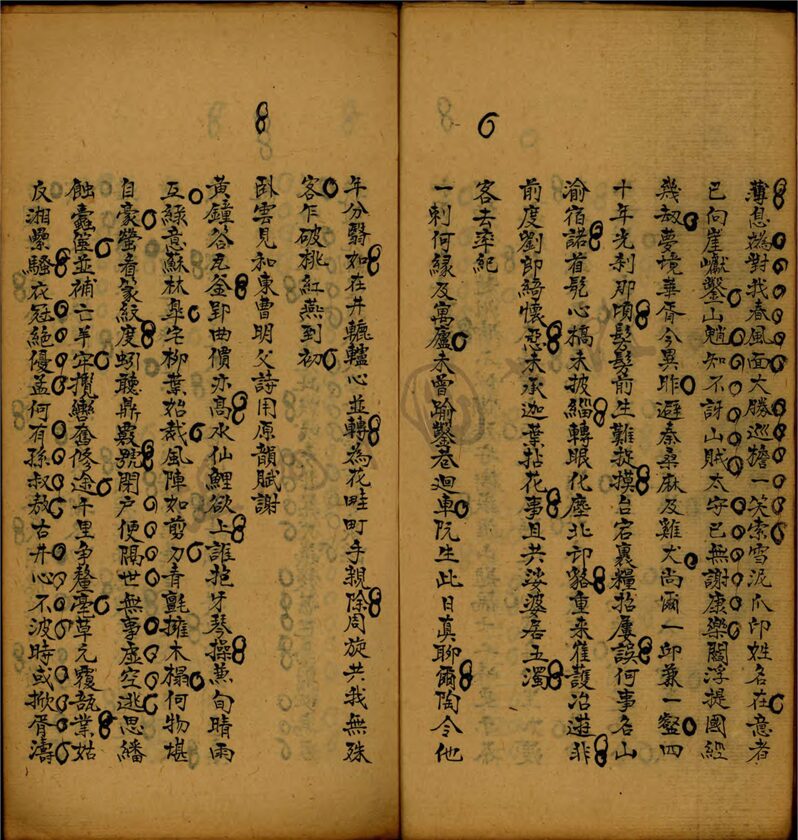 薄息為對我春風面大勝巡簷一笑索雪泥爪印姓名在意者
已向崖巘鑿山魈知不訝山賊太守已無謝康樂閻浮提國經
幾劫夢境華胥今異昨避秦桑麻及雞犬尚爾一邱兼一壑四
十年光剎那頃鬚髮前生難捉摸台宕裹糧招屢誤何事名山
渝宿諾首髡心槁未披緇轉眼化塵北邙貉重來崔護冶遊非
前度劉郎綺懷惡未承迦葉拈花事且共娑婆居五濁
客去率紀
一刺何緣及寓廬未曾踰鑿巷迴車阮生此日真聊爾陶令他
年分翳如在井轆轤心並轉為花畦町手親除周旋共我無殊
客乍破桃紅燕到初
臥雲見和東曹明父詩用原韻賦謝
黃鐘各瓦釜郢曲價亦高水仙鯉欲上誰抱牙琴操兼旬晴雨
互綠意蘇林皋宅柳葉始裁風陣如剪刀青氈擁木榻何物堪
自豪螢看篆紋度蚓聽鼎竅號閉戶便隔世無事虛空逃思繙
蝕蠹編並補亡羊牢攬轡奮修途千里爭釐毫草元覆瓿業姑
反湘纍騷衣冠絕優孟何有孫叔敖古井心不波時或掀胥濤